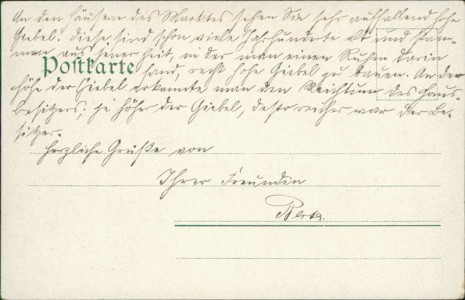 An den Häusern des Marktes sehen Sie sehr auffallend hohe
Giebel. Diese sind schon viele Jahrhunderte alt und stam-
men aus jener Zeit, in der man einen Ruhm darin
Postkarte
fand, recht hohe Giebel zu bauen. An der
Höhe der Giebel erkannte man den Reichtum des Haus-
besitzers; je höher der Giebel, desto reicher war der Be-
sitzer.
Herzliche Grüße von
Ihrer Freundin